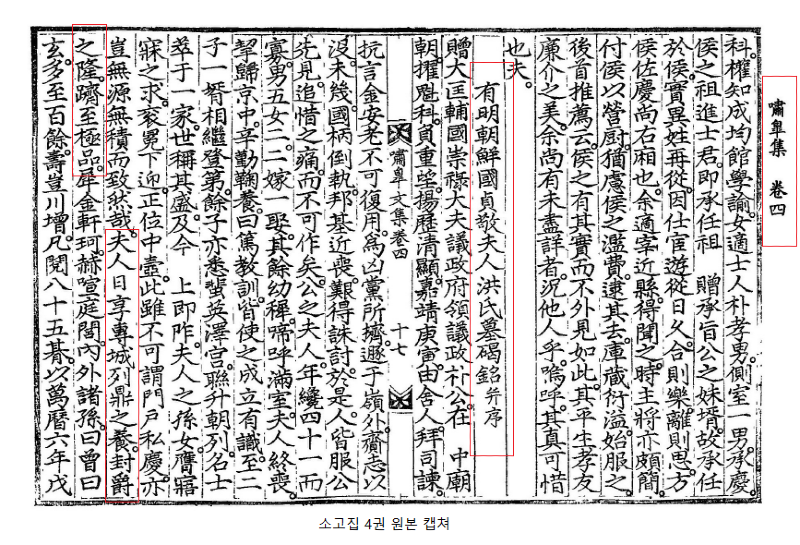 嘯皐集 卷四
科權知成均館學諭女適士人朴孝男側室一男承慶
侯之祖進士君即承任祖 贈承旨公之妹壻故承任
於侯實異姓再從因仕宦遊從日久合則樂離則思方
侯佐慶尚右廂也余適宰近縣得聞之時主將亦頗簡
付侯以營厨猶慮侯之濫費逮其去庫藏衍溢始服之
後首推薦云侯之有其實而不外見如此其平生孝友
廉介之美余尚有未盡詳者況他人乎嗚呼其真可惜
也夫
有明朝鮮國貞敬夫人洪氏墓碣銘 并序
贈大匡輔國崇祿大夫議政府領議政朴公在 中廟
朝擢魁科負重望揚歷清顯嘉靖庚寅由舍人拜司諫
嘯皐文集卷四 十七
抗言金安老不可復用爲凶黨所擠遯于嶺外齎志以
沒未幾國柄倒執邦基近喪艱得誅討於是人皆服公
先見追惜之痛而不可作矣公之夫人年纔四十一而
寡男五女二二嫁一娶其餘幼穉啼呼滿室夫人終喪
挈歸京中辛勤鞠養曰篤教訓皆使之成立有識至二
子一婿相繼登第餘子亦悉蜚英澤宮聯升朝列名士
萃于一家世稱其盛及今 上即阼夫人之孫女膺寤
寐之求袞冕下迎正位中壼此雖不可謂門戶私慶亦
豈無源無積而致然哉夫人日享專城列鼎之養封爵
之隆躋至極品犀金軒珂赫喧庭閭內外諸孫曰曾曰
玄多至百餘壽豈川增凡閱八十五朞以萬曆六年戊
소고집 4권 원본 캡쳐